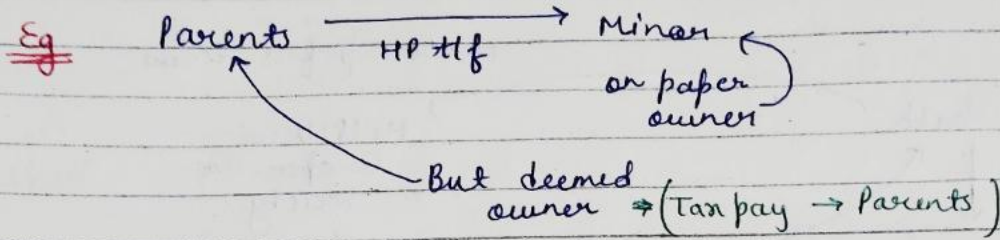 Eg
Parents → Minor
HP tf
on paper
owner
But deemed
owner ⇒ (Tax pay → Parents)